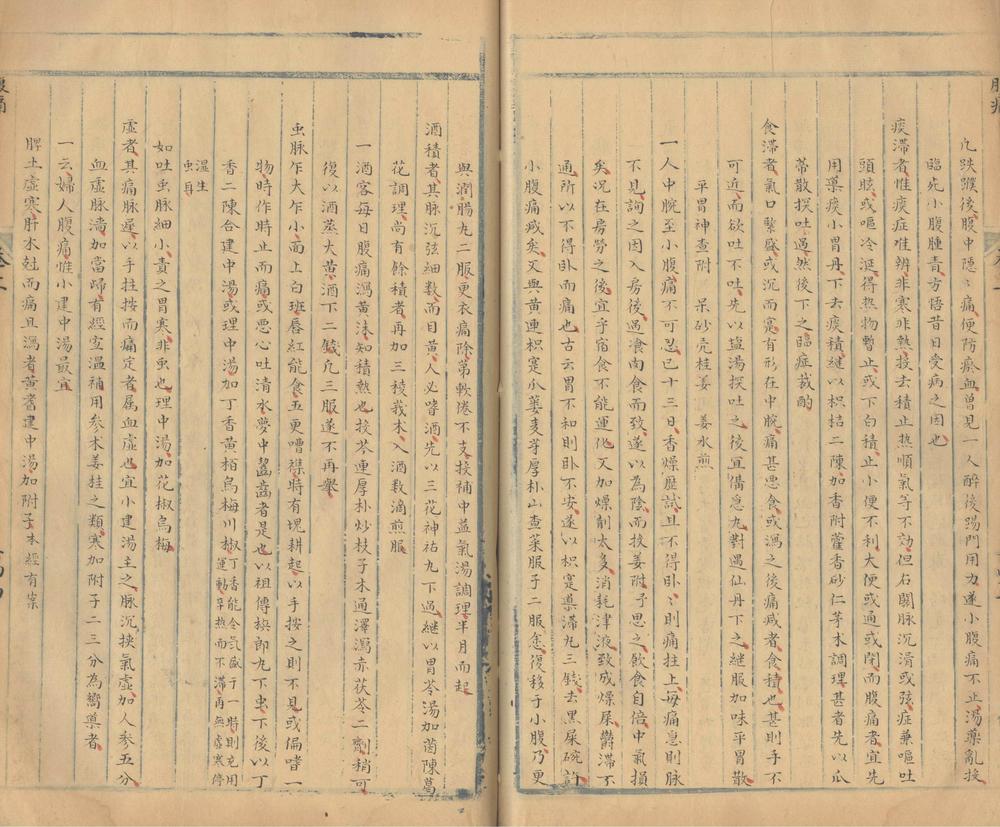 凡跌蹼後腹中隱〻痛便防瘀血曾見一人醉後踢門用力遂小腹痛不止湯藥亂投
臨死小腹腫青方悟昔日受病之因也
痰滯者惟痰症难辨非寒非熱投去積止熱順氣等不効但右關脉沉滑或弦症兼嘔吐
頭眩或嘔冷涎得熱物暫止或下白積止小便不利大便或通或閉而腹痛者宜先
用藥痰小胃丹下去痰積継以枳桔二陳加香附藿香砂仁茅术調理甚者先以瓜
蒂散探吐過然後下之臨症裁酌
食滯者氣口緊盛或沉而寔有形在中脘痛甚惡食或瀉之後痛减者食積也甚則手不
可近而欲吐不吐先以塩湯探吐之後宜備急丸對遇仙丹下之継服加味平胃散
平胃神查附 呆砂壳桂姜 姜水煎
一人中脘至小腹痛不可忍已十三日香燥歷試且不得卧〻則痛拄上每痛急則脉
不見詢之因入房後過飡肉食而致遂以為陰而投姜附予思之飲食自倍中氣損
矣况在房勞之後宜乎宿食不能運化又加燥削太多消耗津液致成燥屎欝滯不
通所以不得卧而痛也古云胃不和則卧不安遂以枳寔導滯丸三錢去黑屎碗許
小腹痛减矣又與黄連枳寔瓜蔞麦芽厚朴山查萊服子二服愈復移于小腹乃更
與潤腸丸二服更衣痛除苐軟倦不支投補中益氣湯調理半月而起
酒積者其脉沉弦細数而目黄人必嗜酒先以三花神祐丸下過継以胃苓湯加茵陳葛
花調理尚有餘積者再加三稜莪术入酒数滴煎服
一酒客每日腹痛瀉黄沫知積熱也投芩連厚朴炒枝子木通澤瀉赤茯苓二劑稍可
復以酒蒸大黄酒下二錢凢三服遂不再舉
虫脉乍大乍小面上白班唇紅能食五更嘈襍時有堁耕起以手按之則不見或偏嗜一
物時作時止而痛或惡心吐清水夢中齧齒者是也以祖傳抉郎丸下虫下後以丁
香二陳合建中湯或理中湯加丁香黄栢烏梅川椒丁香能令氣
運動早熱而不滯再無虚寒停
温生
虫身
如吐虫脉細小責之胃寒非虫也理中湯加花椒烏梅
虚者其痛脉遲以手拄按而痛定者属血虚也宜小建湯主之脉沉挟氣虚加人参五分
血虚脉濇加當歸有經寔温補用参术姜桂之類寒加附子二三分為嚮導者
一云婦人腹痛惟小建中湯最宜
脾土虚寒肝木尅而痛且瀉者黄耆建中湯加附子术經有案